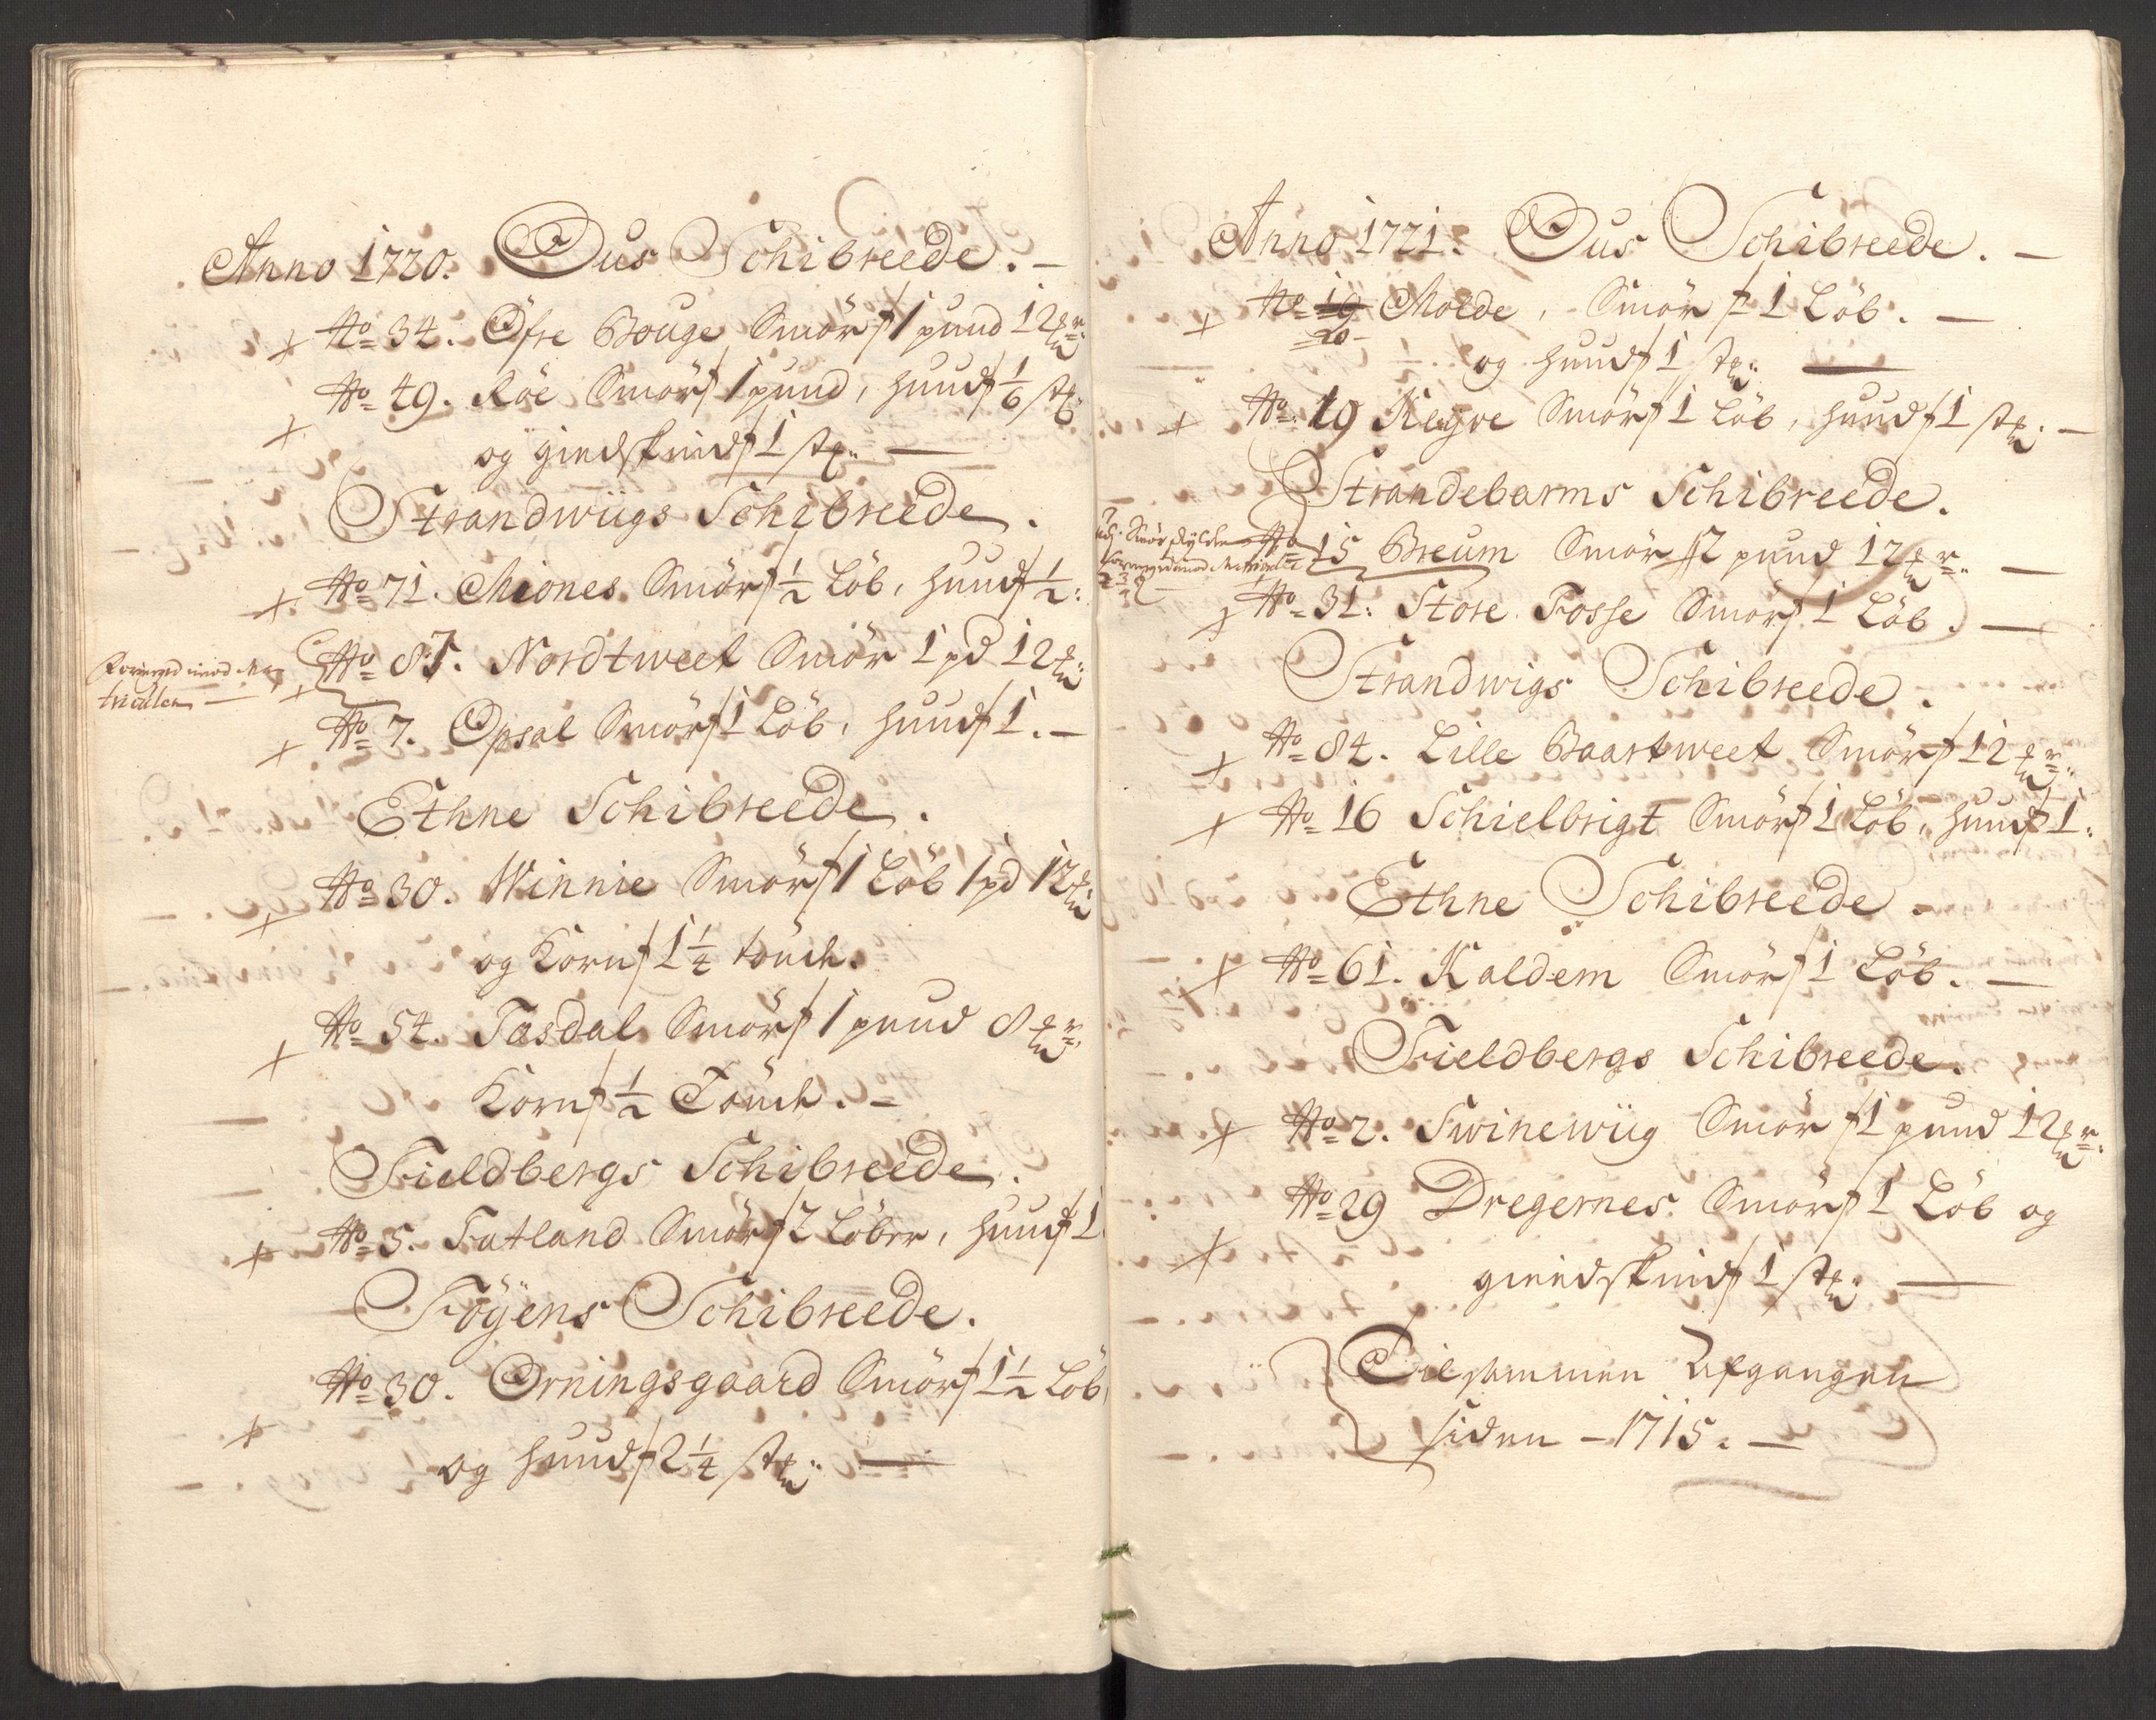 Anno 1720. Ous Schibreede. –
+ No 34. Öfre Bouge Smör 1 pund 12 mr:
+ No 49. Röe Smör 1 pund, huud 1/6 st:
og giedskind 1 st: —
Strandwiigs Schibreede.
+ No 71. Miones Smör 1/2 Löb, huud 1/2:
+ No 87. Nordtweet Smör 1 pd 12 m:
imod Ma
triculen —
+ No 7. Opsal Smör 1 Löb, huud 1. –
Ethne Schibreede.
+ No 30. Winnie Smör 1 Löb 1 pd 12 m:
og Korn 1 1/4 tönde.
+ No 54. Tasdal Smör 1 pund 8 mr:
Korn 1/2 Tönde. –
Fieldbergs Schibreede.
+ No 5. Fatland Smör 2 Löber, huud 1
Föÿens Schibreede.
+ No 30. Orningsgaard Smör 1 1/2 Löb
og huud 2 1/4 st: —
Anno 1721. Ous Schibreede. –
+ No 19 Molde, Smör 1 Löb. —
20
og huud 1 st: —
+ No 19 Regve Smör 1 Löb, huud 1 st: –
Strandebarms Schibreede.
No 15 Breum Smör 2 pund 12 mr: —
Smör skylden
+ No 31: Store Fosse Smör 1 Löb. —
Strandwigs Schibreede.
+ No 84. Lille Baartweet Smör 12 mr:
+ No 16 Schielbrigt Smör 1 Löb, huud 1:
Ethne Schibreede.
+ No 61. Kaldem Smör 1 Löb. —
Fieldbergs Schibreede.
+ No 2. Swinewiig Smör 1 pund 12 mr:
+ No 29 Dregernes Smör 1 Löb og
giedskind 1 st: —
Tilsammen Afgangen
siden – 1715. —